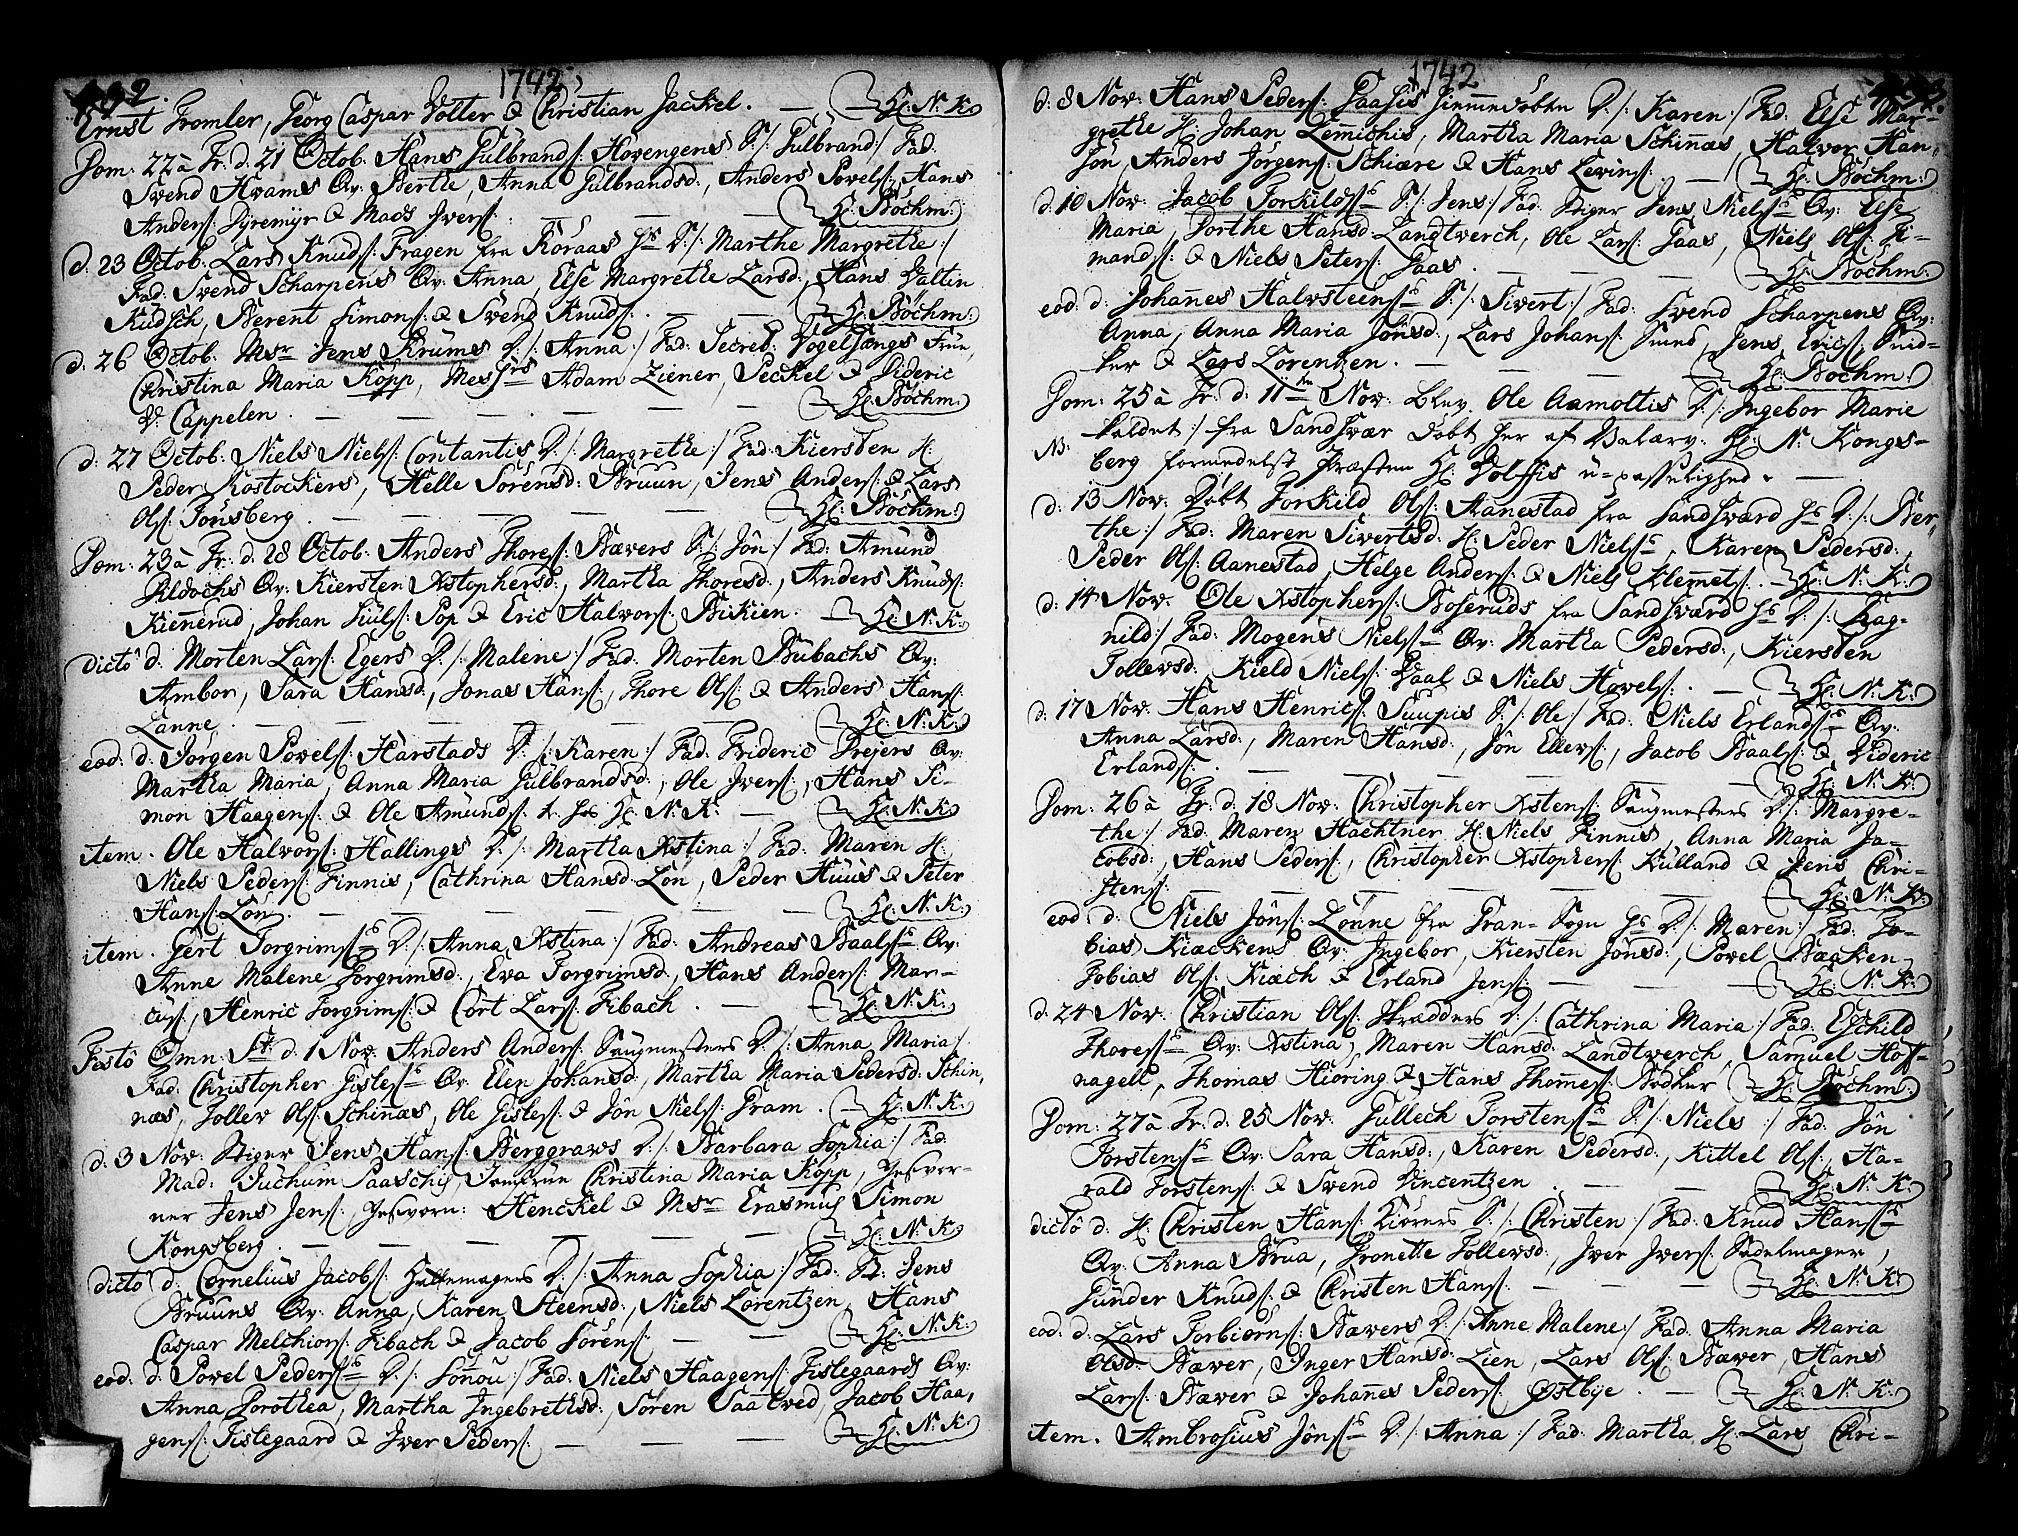 492.
1742
Ernst Tromler, Georg Caspar Volter & Christian Jackel. — H: N. K:
Dom: 22 a Tr. d. 21 Octob. Hans Gulbrands: Hovengens S:/: Gulbrand:/ Fad.
Svend Hvams Qv: Berthe, Anna Gulbrandsd:, Anders Povels:, Hans
Anders: Dyremyr & Mads Ivers: — H: Bøchm:
d: 23 Octob. Lars Knuds: Fragen fra Koraas D:/: Marthe Margrethe:/
Fad: Svend Scharpens Qv: Anna, Else Margrethe Larsd:, Hans Valtin
Kudsch, Berent Simons: & Svend Knuds: — H: Bøchm:
d: 26 Octob. Msr Jens Krums D:/: Anna:/ Fad: Secret: Vogelsangs Frue,
Christina Maria Kopp, Messrs Adam Ziener, Seckel & Dideric
V: Cappelen. — H: Bøchm:
d: 27 Octob. Niels Niels: Contantis D:/: Margrethe:/ Fad: Kiersten H:
Peder Rostockers, Helle Sørensd: Bruun, Jens Anders: & Lars
Ols: Tønsberg. — H: Bøchm:
Dom: 23 a Tr. d. 28 Octob: Anders Thores: Bævers S:/: Jôn:/ Fad: Amund
Qv: Kiersten Xstophersd:, Martha Thoresd:, Anders Knuds:
Kiennerud, Johan Juls: Pop & Eric Halvors: Bikien. — H: N. K:
dictô d. Morten Lars: Egers D:/: Malene:/ Fad: Morten Bubachs Qv:
Ambor, Sara Hansd:, Jonas Hans:, Thore Ols: & Anders Hans:
Lanne. — H: N. K:
eod: d. Jørgen Povels: Harstads D:/: Karen:/ Fad. Frideric Drejers Qv:
Martha Maria, Anna Maria Gulbrandsd:, Ole Ivers:, Hans Si-
mon Haagens: & Ole Amunds: H: N. K: — H: N. K:
item. Ole Halvors: Hallings D:/: Martha Xstina:/ Fad. Maren H:
Niels Peders: Finnis, Cathrina Hansd: Lôn, Peder Huus & Peter
Hans: Lôn. — H: N. K:
item. Gert Torgrims: D:/: Anna Xstina:/ Fad: Andreas Baals: Qv:
Anne Malene Torgrimsd:, Eva Torgrimsd:, Hans Anders: Mar-
cus:, Henric Torgrims: & Cort Lars: Fibach. — H: N. K:
Festô Omn: St: d. 1 Nov: Anders Anders: Saugmesters D:/: Anna Maria:/
Fad: Christopher Gisles: Qv: Elen Johansd:, Martha Maria Pedersd: Schin,
næs, Joller Ols: Schinnæs, Ole Gisles: & Jôn Niels: Pram. — H: N. K:
d: 3 Nov. Stiger Jens Hans: Berggraws D:/: Barbara Sophia:/ Fad.
Mad: Juchum Paaschis, Jomfrue Christina Maria Kopp, Geschvor-
ner Jens Jens: Geschvorn: Henckel & Msr Erasmus Simon
Kongsberg. — H: N. K:
dictô d. Cornelius Jacobs: Hyttemagers D:/: Anna Sophia:/ Fad: St. Jens
Bruuns Qv: Anna, Karen Steensd:, Niels Lorentzen, Hans
Caspar Melchiors: Fibach & Jacob Sørens: — H: N. K:
eod: d. Povel Peders: D:/: Sønou:/ Fad: Niels Haagens: Fislegaards Qv:
Anna Dorothea, Martha Ingebrethsd:, Søren Saatved, Jacob Haa,
gens: Fislegaard & Iver Peders: — H: N. K:
1742
d: 8 Nov: Hans Peders: Faassis hiemmedøbte D:/: Karen:/ Fad: Else Mar-
grethe H: Johan Lemmichis, Martha Maria Schinnæs, Halvor Han,
sôn, Anders Jørgens: Schiære & Hans Levins: — H: Bøchm:
d. 10 Nov. Jacob Torkilds: S:/: Jens:/ Fad: Stiger Jens Niels: Qv: Else
Maria, Dorthe Hansd: Landtverch, Ole Lars: Faas, Niels Ols: Ti-
mands: & Niels Peters: Faas. — H: Bøchm:
eod: d: Johannes Halvsteens: S:/: Sivert:/ Fad: Svend Scharpens Qv:
Anna, Anna Maria Jônsd:, Lars Johans: Smed, Jens Erics: Snid-
ker & Lars Lorentzen. — H: Bøchm:
Dom: 25 a Tr. d: 11te Nov: blev Ole Aamottis D:/: Ingebor Marie
NB. kaldet:/ fra Sandsvær døbt her af H: N. Kongs-
berg formedelst Præsten H: Wolffis u-passelighed. —
d: 13 Nov. Døbt Torkild Ols: Aanestad fra Sandsværd D:/: Ber,
the:/ Fad: Maren Sivertsd: H: Peder Niels:, Karen Pedersd:,
Peder Ols: Aanestad, Helge Anders: & Niels Klemmets: — H: N. K:
d: 14 Nov. Ole Xstophers: Boseruds fra Sandsværd D:/: Rag-
nild:/ Fad: Mogens Niels: Qv: Martha Pedersd:, Kiersten
Tollevsd:, Kield Niels: Vaal & Niels Havels: — H: N. K:
d. 17 Nov. Hans Henrics: Suupis S:/: Ole:/ Fad: Niels Erlands: Qv:
Anna Larsd:, Maren Hansd:, Jôn Ellevs:, Jacob Baals: & Dideric
Erlands: — H: N. K:
Dom: 26 a Tr. d. 18 Nov: Christopher Xstens: Saugmesters D:/: Margre-
the:/ Fad. Maren Hachtner H: Niels Finnis, Anna Maria Ja-
cobsd:, Hans Peders:, Christopher Xstophers: Kulland & Jens Chri-
stens: — H: N. K:
eod d: Niels Jôns: Lønne fra Tran- Sogn D:/: Maren:/ Fad: To-
bias Kiæckens Qv: Ingebor, Kiersten Jônsd:, Povel Bæcken,
Tobias Ols: Kiæch & Erland Jens: — H: N. K:
d: 24 Nov: Christian Ols: Skrædders D:/: Cathrina Maria:/ Fad: Eschild
Thores: Qv: Xstina, Maren Hansd: Landtverch, Samuel Hoff-
nagell, Thomas Hiøring & Hans Thommes: Bødker — H: Bøchm:
Dom: 27 a Tr. d. 25 Nov. Gullech Torstens: S:/: Niels:/ Fad: Jôn
Torstens: Qv: Sara Hansd:, Karen Pedersd:, Kittel Ols:, Ha-
rald Torstens: & Svend Vincentzen. — H: N. K:
dictô d: H: Christen Hans: Kiørers S:/: Christen:/ Fad: Knud Hans:
Qv: Anna Brua, Pronette Tollevsd:, Iver Ivers: Sadelmager,
Gunder Knuds: & Christen Hans: — H: N. K:
eod: d: Lars Torbiørns: Bævers D:/: Anne Malene:/ Fad: Anna Maria
Olsd: Bæver, Inger Hansd: Lien, Lars Ols: Bæver, Hans
Lars: Bæver & Johannes Peders: Østbye. — H: N. K:
item. Ambrosius Jôns: D:/: Anna:/ Fad: Martha H: Lars Chri-